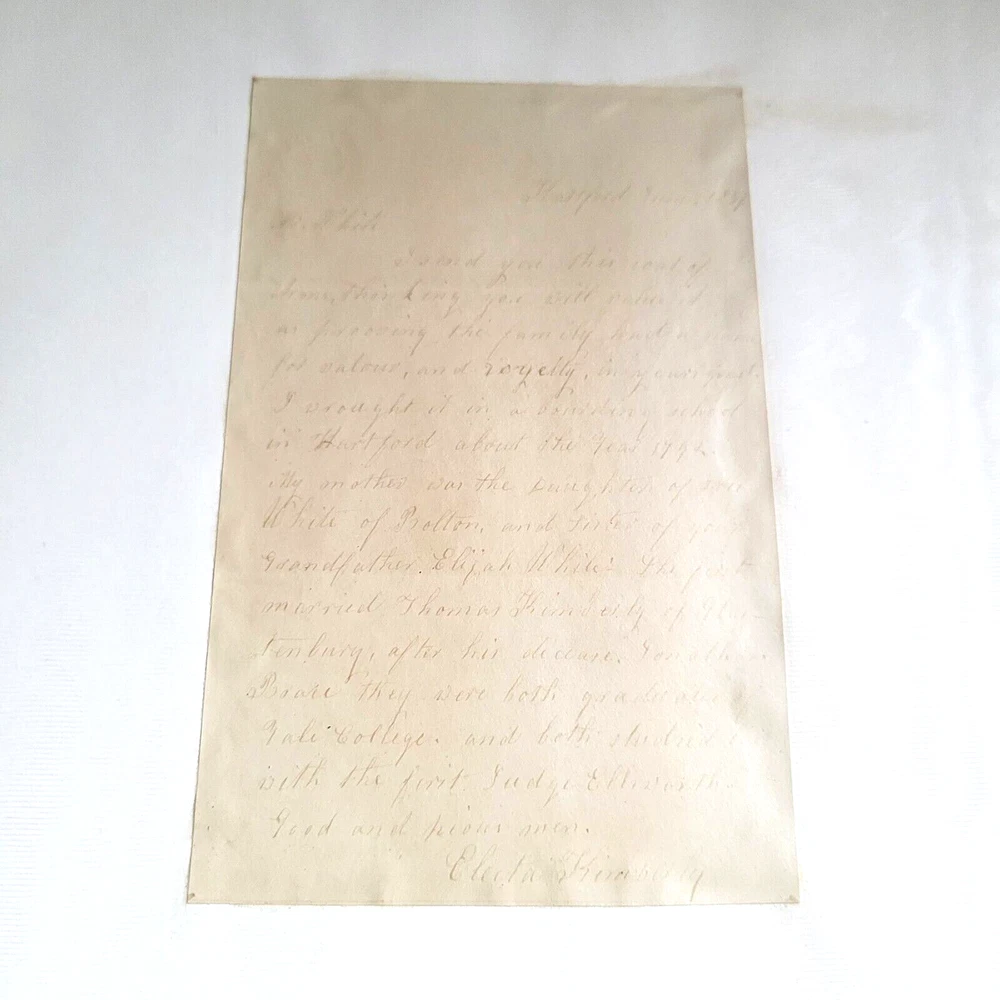 Hartford
I send you this coat of
arms, thinking you will value it
as prooving the family had a name
for valour, and royelty, in years past
I wrought it in a boarding school
in Hartford about the Year 179
My mother was the Daughter of
White of Bolton, and Sister of your
Grandfather Elijah White. She first
married Thomas Kimberly of Glas-
tenbury, after his decease, Jonathan
Brace they were both graduates of
Yale College. and both studied
with the first Judge Ellsworth
Good and pious men.
Electa Kimberly